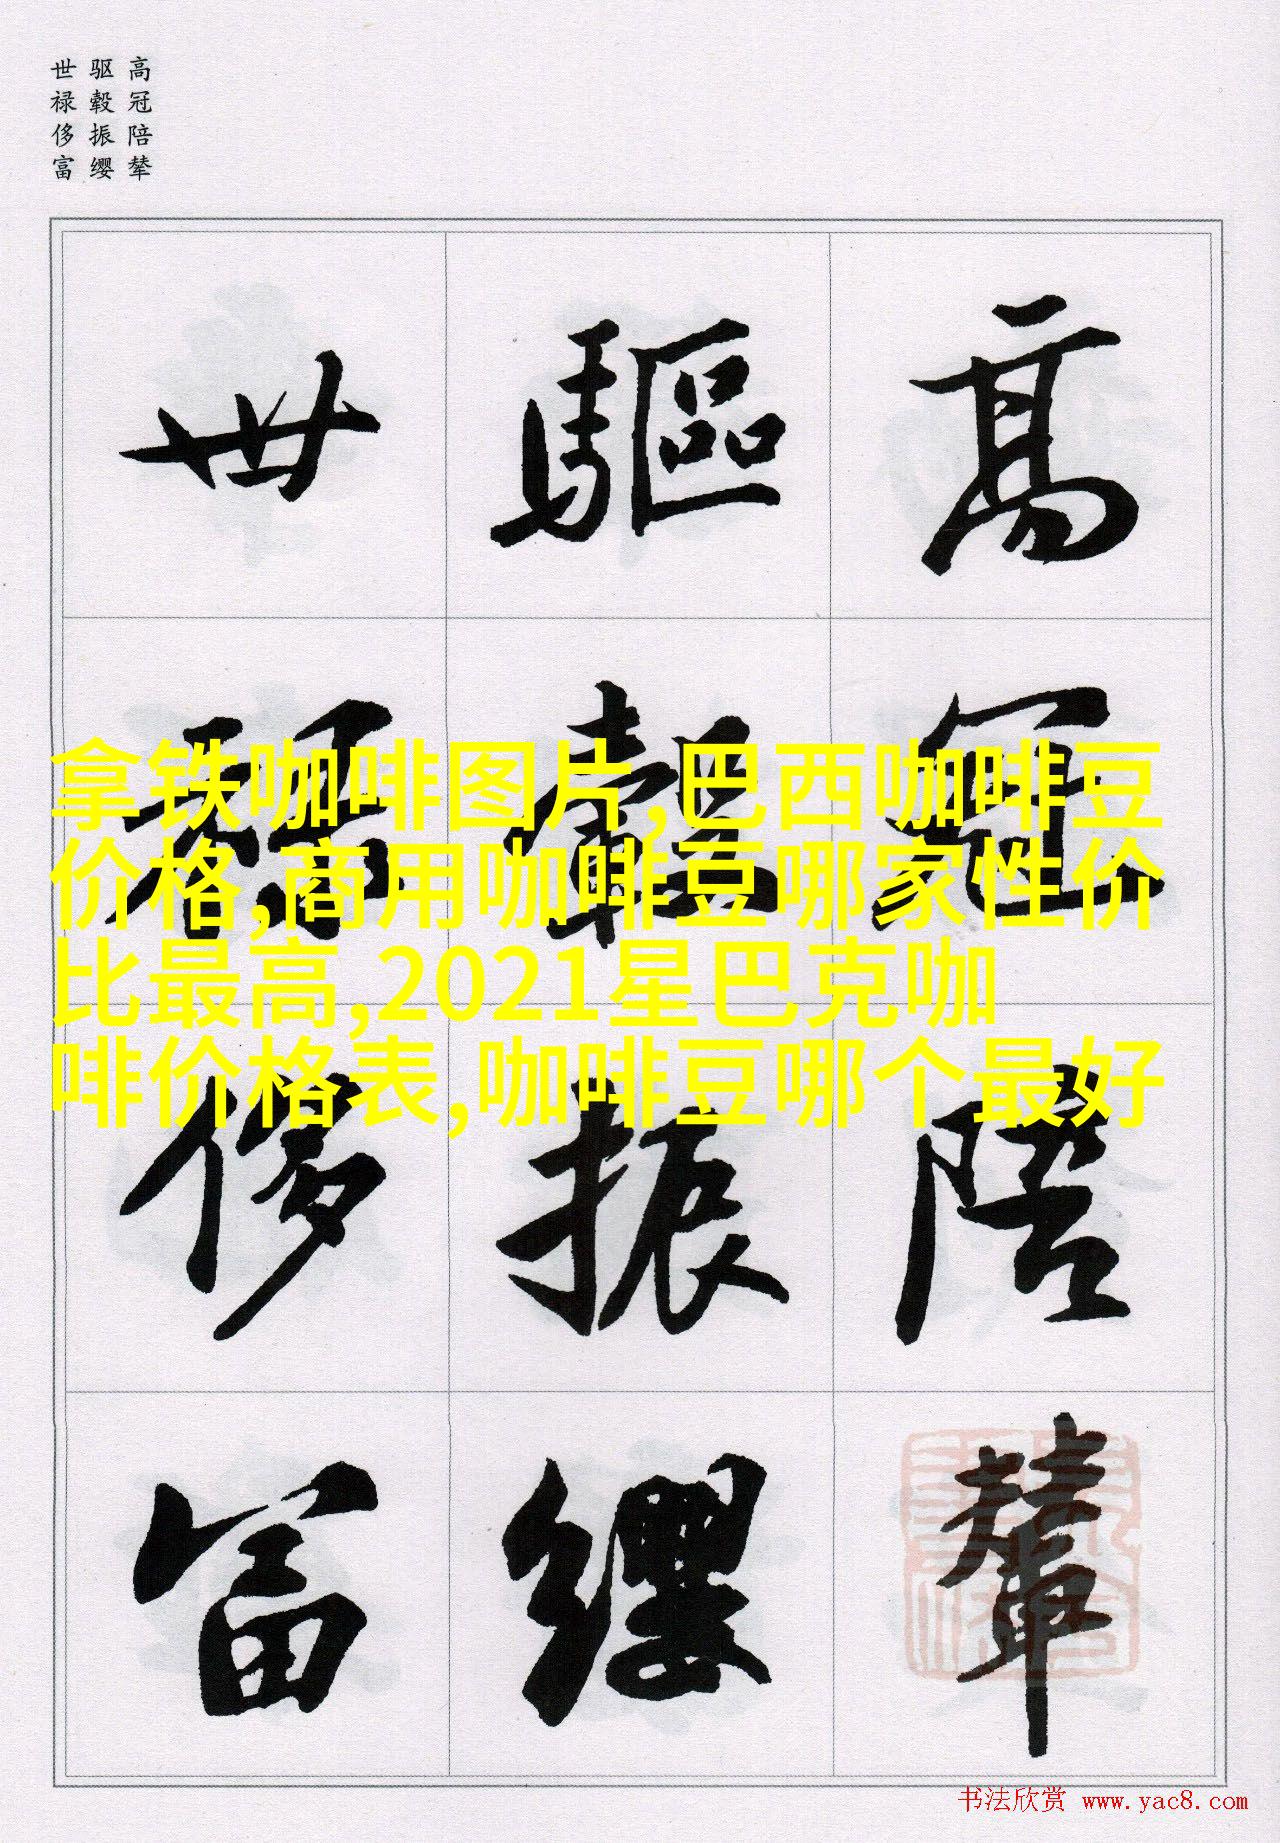 高冠陪辇
驱毂振缨
世禄侈富
高冠陪輦
驅轂振纓
世禄侈富
拿铁咖啡图片,巴西咖啡豆
价格,商用咖啡豆哪家性价
比最高,2021星巴克咖
啡价格表,咖啡豆哪个最好
书法欣赏 www.yac8.com